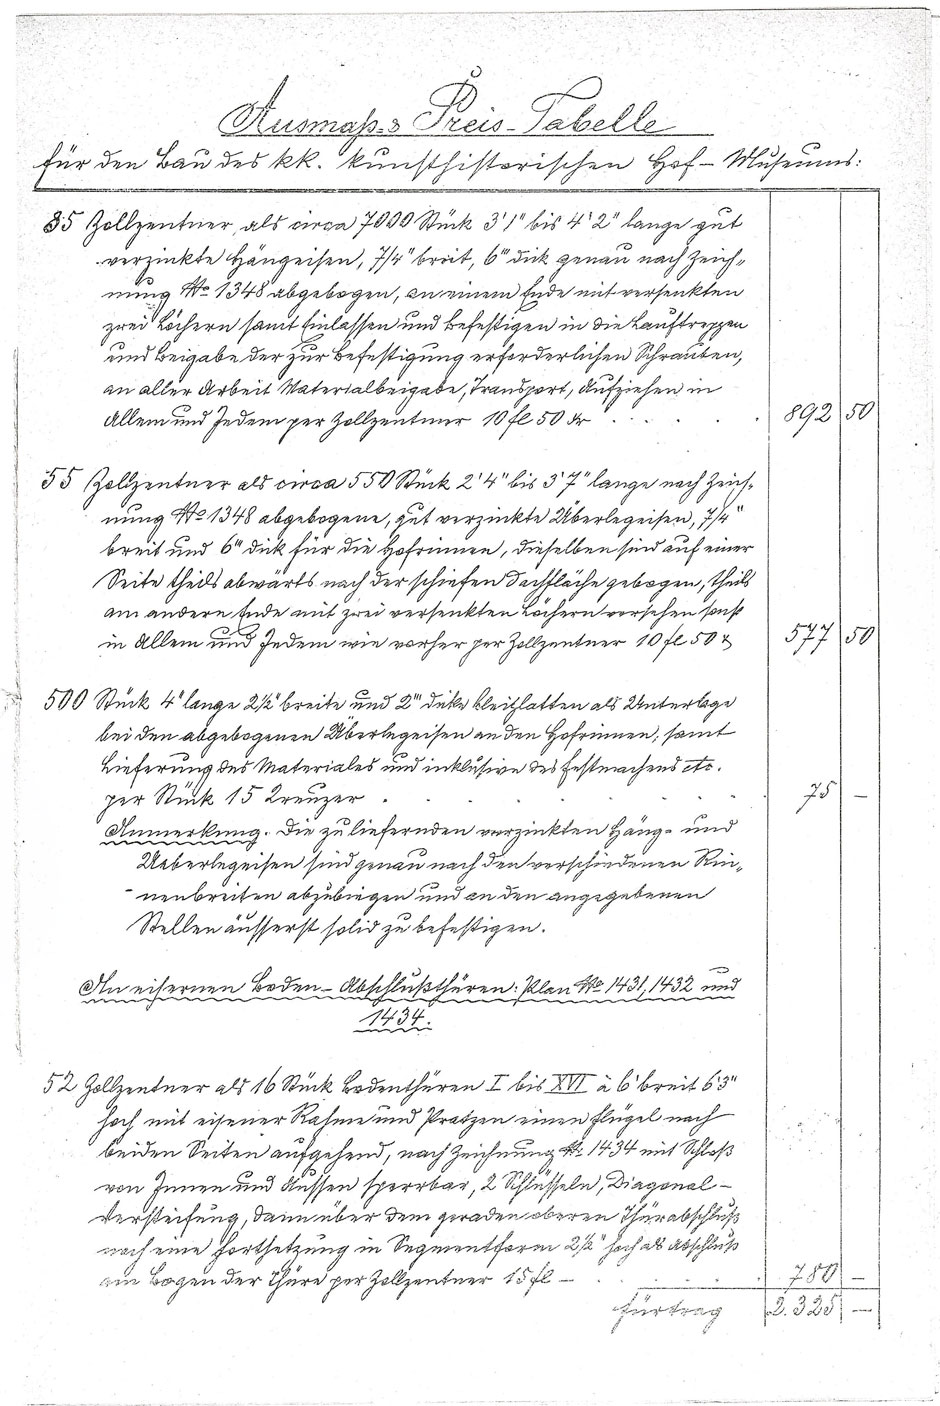 Ausmaß- & Preis-Tabelle
für den Bau des kk. kunsthistorischen Hof-Museums:
85 Zollzentner, als circa 7000 Stück 3'1" bis 4'2" lange gut
verzinkte Hängeisen, 7/4" breit, 6''' dick genau nach Zeich-
nung No 1348 abgebogen, an einem Ende mit versenkten
zwei Löchern samt Einlassen und Befestigen in die Lauftreppen
und Beigabe der zur Befestigung erforderlichen Schrauben,
an aller Arbeit Materialbeigabe, Transport, Aufziehen in
Allem und Jedem per Zollzentner 10 fl 50 Kr 892 50
55 Zollzentner als circa 550 Stück 2'4" bis 3'7" lange nach Zeich-
nung No 1348 abgebogene, gut verzinkte Überlegeisen, 7/4"
breit und 6''' dick für die Hofrinnen, dieselben sind auf einer
Seite theils abwärts nach der schiefen Dachfläche gebogen, theils
am andern Ende mit zwei versenkten Löchern versehen sonst
in Allem und Jedem wie vorher per Zollzentner 10 fl 50 577 50
500 Stück 4" lange 2½" breite und 2''' dicke Bleiplatten als Unterlage
bei den abgebogenen Überlegeisen an den Hofrinnen, samt
Lieferung des Materiales und inklusive des Festmachens etc.
per Stück 15 Kreuzer 75 —
Anmerkung. Die zu liefernden verzinkten Häng- und
Ueberlegeisen sind genau nach den verschiedenen Rin-
nenbreiten abzubiegen und an den angegebenen
Stellen äusserst solid zu befestigen.
An eisernen Boden-Abschlußthüren: Plan No 1431, 1432 und
1434.
52 Zollzentner als 16 Stück Bodenthüren I bis XVI à 6' breit 6'3"
hoch mit eisener Rahme und Pratzen einen Flügel nach
beiden Seiten aufgehend, nach Zeichnung No 1434 mit Schloß
von Innen und Aussen sperrbar, 2 Schlüsseln, Diagonal-
Versteifung, dann über dem geraden oberen Thürabschluß
noch eine Fortsetzung in Segmentform 2½" hoch als Abschluß
am Bogen der Thüre per Zollzentner 15 fl — 780 —
Fürtrag 2.325 —